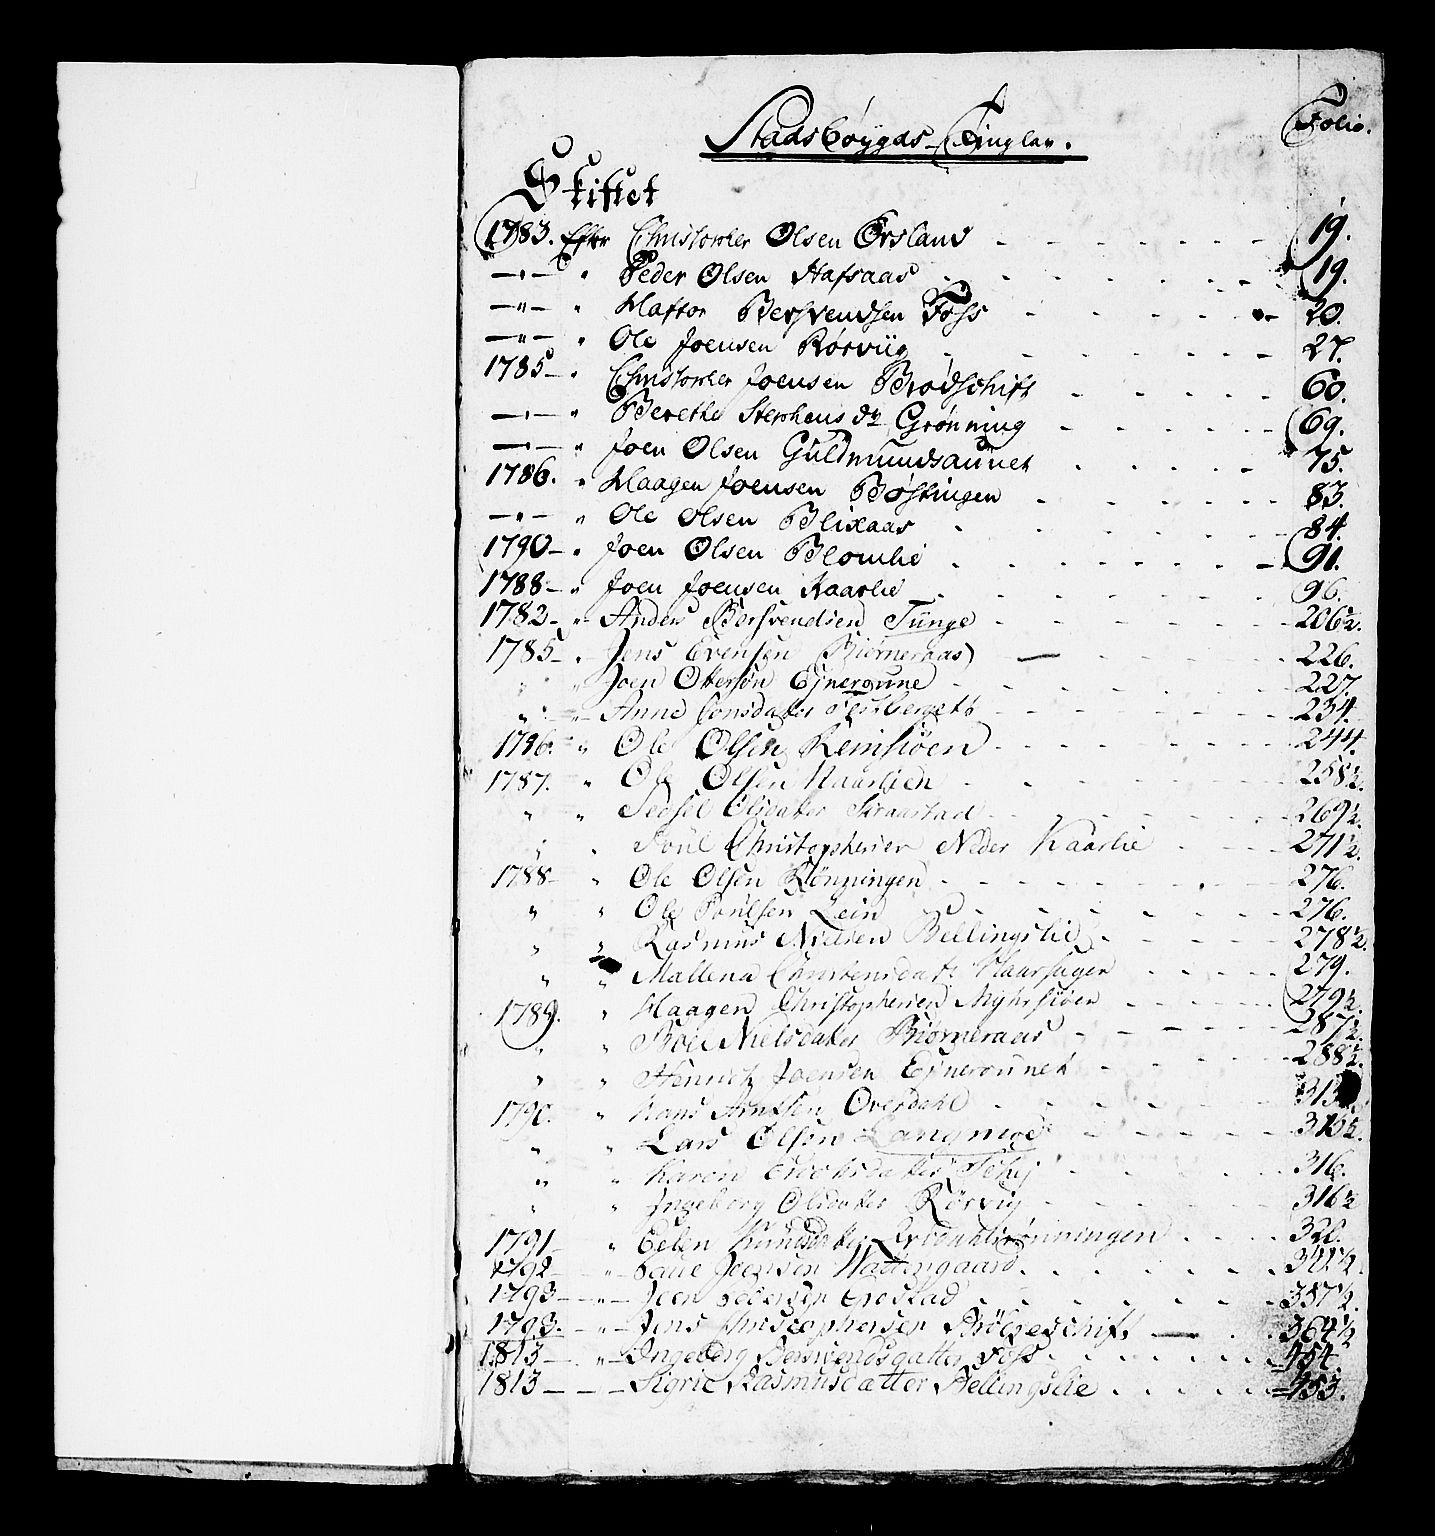 Stadsbøygds Tinglav.
Folio.
Skiftet
1783. Efter Christopher Olsen Ørsland - - - 19.
—"— " Peder Olsen Hafsaas - - - 19.
—"— " Haftor Bersvendsen Foss - - - 20.
—"— " Ole Joensen Rørviig - - - 27.
1785 — " Christopher Joensen Brødschift - - - 60.
—"— " Berethe Stephens dr Grønning - - - 69.
—"— " Joen Olsen Guldmundsaunet - - - 75.
1786. " Haagen Joensen Bøstingen - - - 83.
—"— " Ole Olsen Blixaas - - - 84.
1790 — " Joen Olsen Blomlie - - - 91.
1788 — " Joen Joensen Kaarlie - - - 96.
1782 — " Anders Bersvendsen Tünge - - - 206½.
1785 — " Jens Evensen Biørneraas - - - 226.
" " Joen Ottersøn Ejneroune - - - 227.
" " Anne Jonsdatter - - - 234.
1796. " Ole Olsen Remsiøen - - - 244.
1787. " Ole Olsen Haarlien - - - 258½.
" " Sedsel Olsdatter Skraastad - - - 269½.
" " Poul Christophersen Neder Kaarlie - - - 271½.
1788 — " Ole Olsen Rønningen - - - 276.
" " Ole Poulsen Lein - - - 276.
" " Rasmus Nielsen Bellingslie - - - 278½.
" " Mallena Christensdatr Haarsager - - - 279.
1789. " Haagen Christophersen Myhrsiøen - - - 279½.
" " Boel Nielsdatter Biørneraas - - - 287½.
" " Henrich Joensen Ejnerounet - - - 288½.
1790. " Hans Arntsen Overdahl - - - 313
" " Lars Olsen Langmoe - - - 315½.
" " Karen - - - 316.
" " Ingeborg Olsdatter Rørvig - - - 316½
1791 — " Eelen Knudsdatter - - - 328.
1792 — " Paue Joensen Wattengaard - - - 341½
1793 — " Joen Pedersen Grøstad - - - 357½.
1793. — " — Jens Christophersen Bølgeschift - - - 364½
1813 — " — Ingeborg Berswendsdatter Foss - - - 454.
1813 — — — Sigrie Rasmusdatter Bellingslie - - - 453.